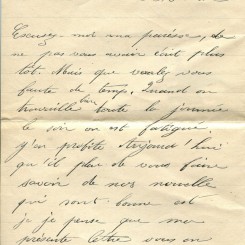 Excusez moi ma paresse, de
ne pas vous avoir écrit plus
tôt. Mais que voulez vous
faute de temps. Quand on
travaille toute la journée
le soir on est fatigué.
J'en profite aujourd'hui
qu'il pleut de vous faire
savoir de nos nouvelle
qui sont bonne et
je je pense que ma
présente lettre vous en